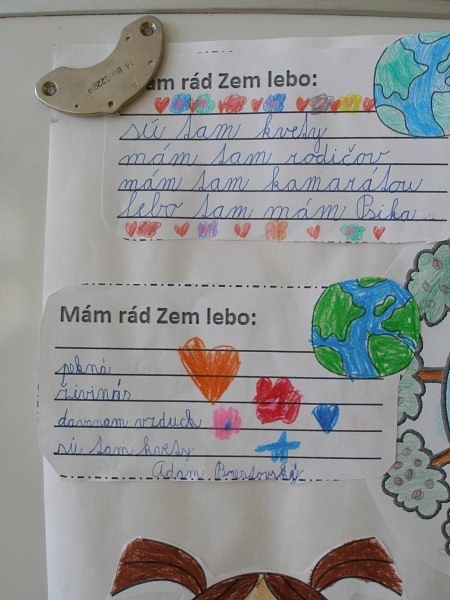 ám rád Zem lebo:
sú tam kvety
mám tam rodičov
mám tam kamarátov
lebo tam mám Psíka
Mám rád Zem lebo:
pekná
živí nás
vzduch
sú tam kvety
Adam